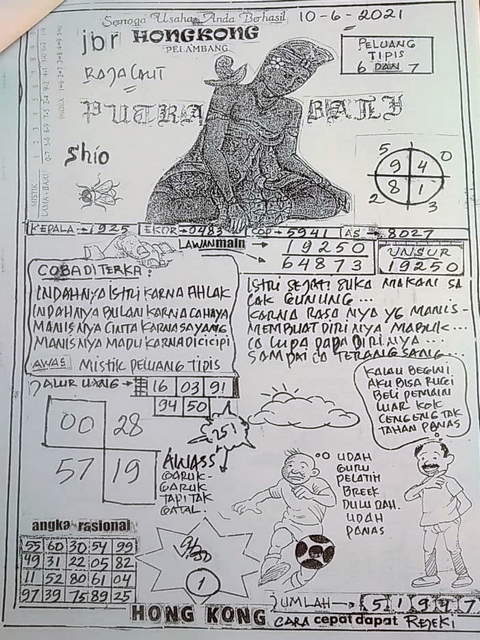 Semoga Usaha Anda Berhasil 10-6-2021
jbr HONGKONG
PELAMBANG
RAJA LAUT
PELUANG
TIPIS
6 DAN 7
PUTRA BALI
Shio
5 0
9 4
8 1
2 3
KEPALA→1925 EKOR→0483 COP→5941 AS→8027
LAWAN main → 19250
→ 64873
UNSUR
19250
COBA DITERKA:
INDAHNYA ISTRI KARNA AHLAK
INDAHNYA BULAN KARNA CAHAYA
MANISNYA CINTA KARNA SAYANG
MANISNYA MADU KARNA DICICIPI
AWAS MISTIK PELUANG TIPIS
ISTRI SEJATI SUKA MAKAN SA
LAK GUNUNG...
KARNA RASA NYA YG MANIS-
MEMBUAT DIRINYA MABUK...
IA LUPA PADA DIRINYA...
SAMPAI IA TERANGSANG...
ALUR UANG→ 16 03 91
94 50
KALAU BEGINI
AKU BISA RUGI
BELI PEMAIN
LUAR KOK
CENGENG TAK
TAHAN PANAS
00 28
57 19
251
AWASS
GARUK-
GARUK
TAPI TAK
GATAL.
UDAH
GURU
PELATIH
BREEK
DULU DAH.
UDAH
PANAS
angka rasional
55 60 30 54 99
49 31 22 05 82
11 52 80 61 04
97 39 75 89 25
1
JUMLAH→ 5 1 9 4 7
HONG KONG CARA cepat dapat REJEKI